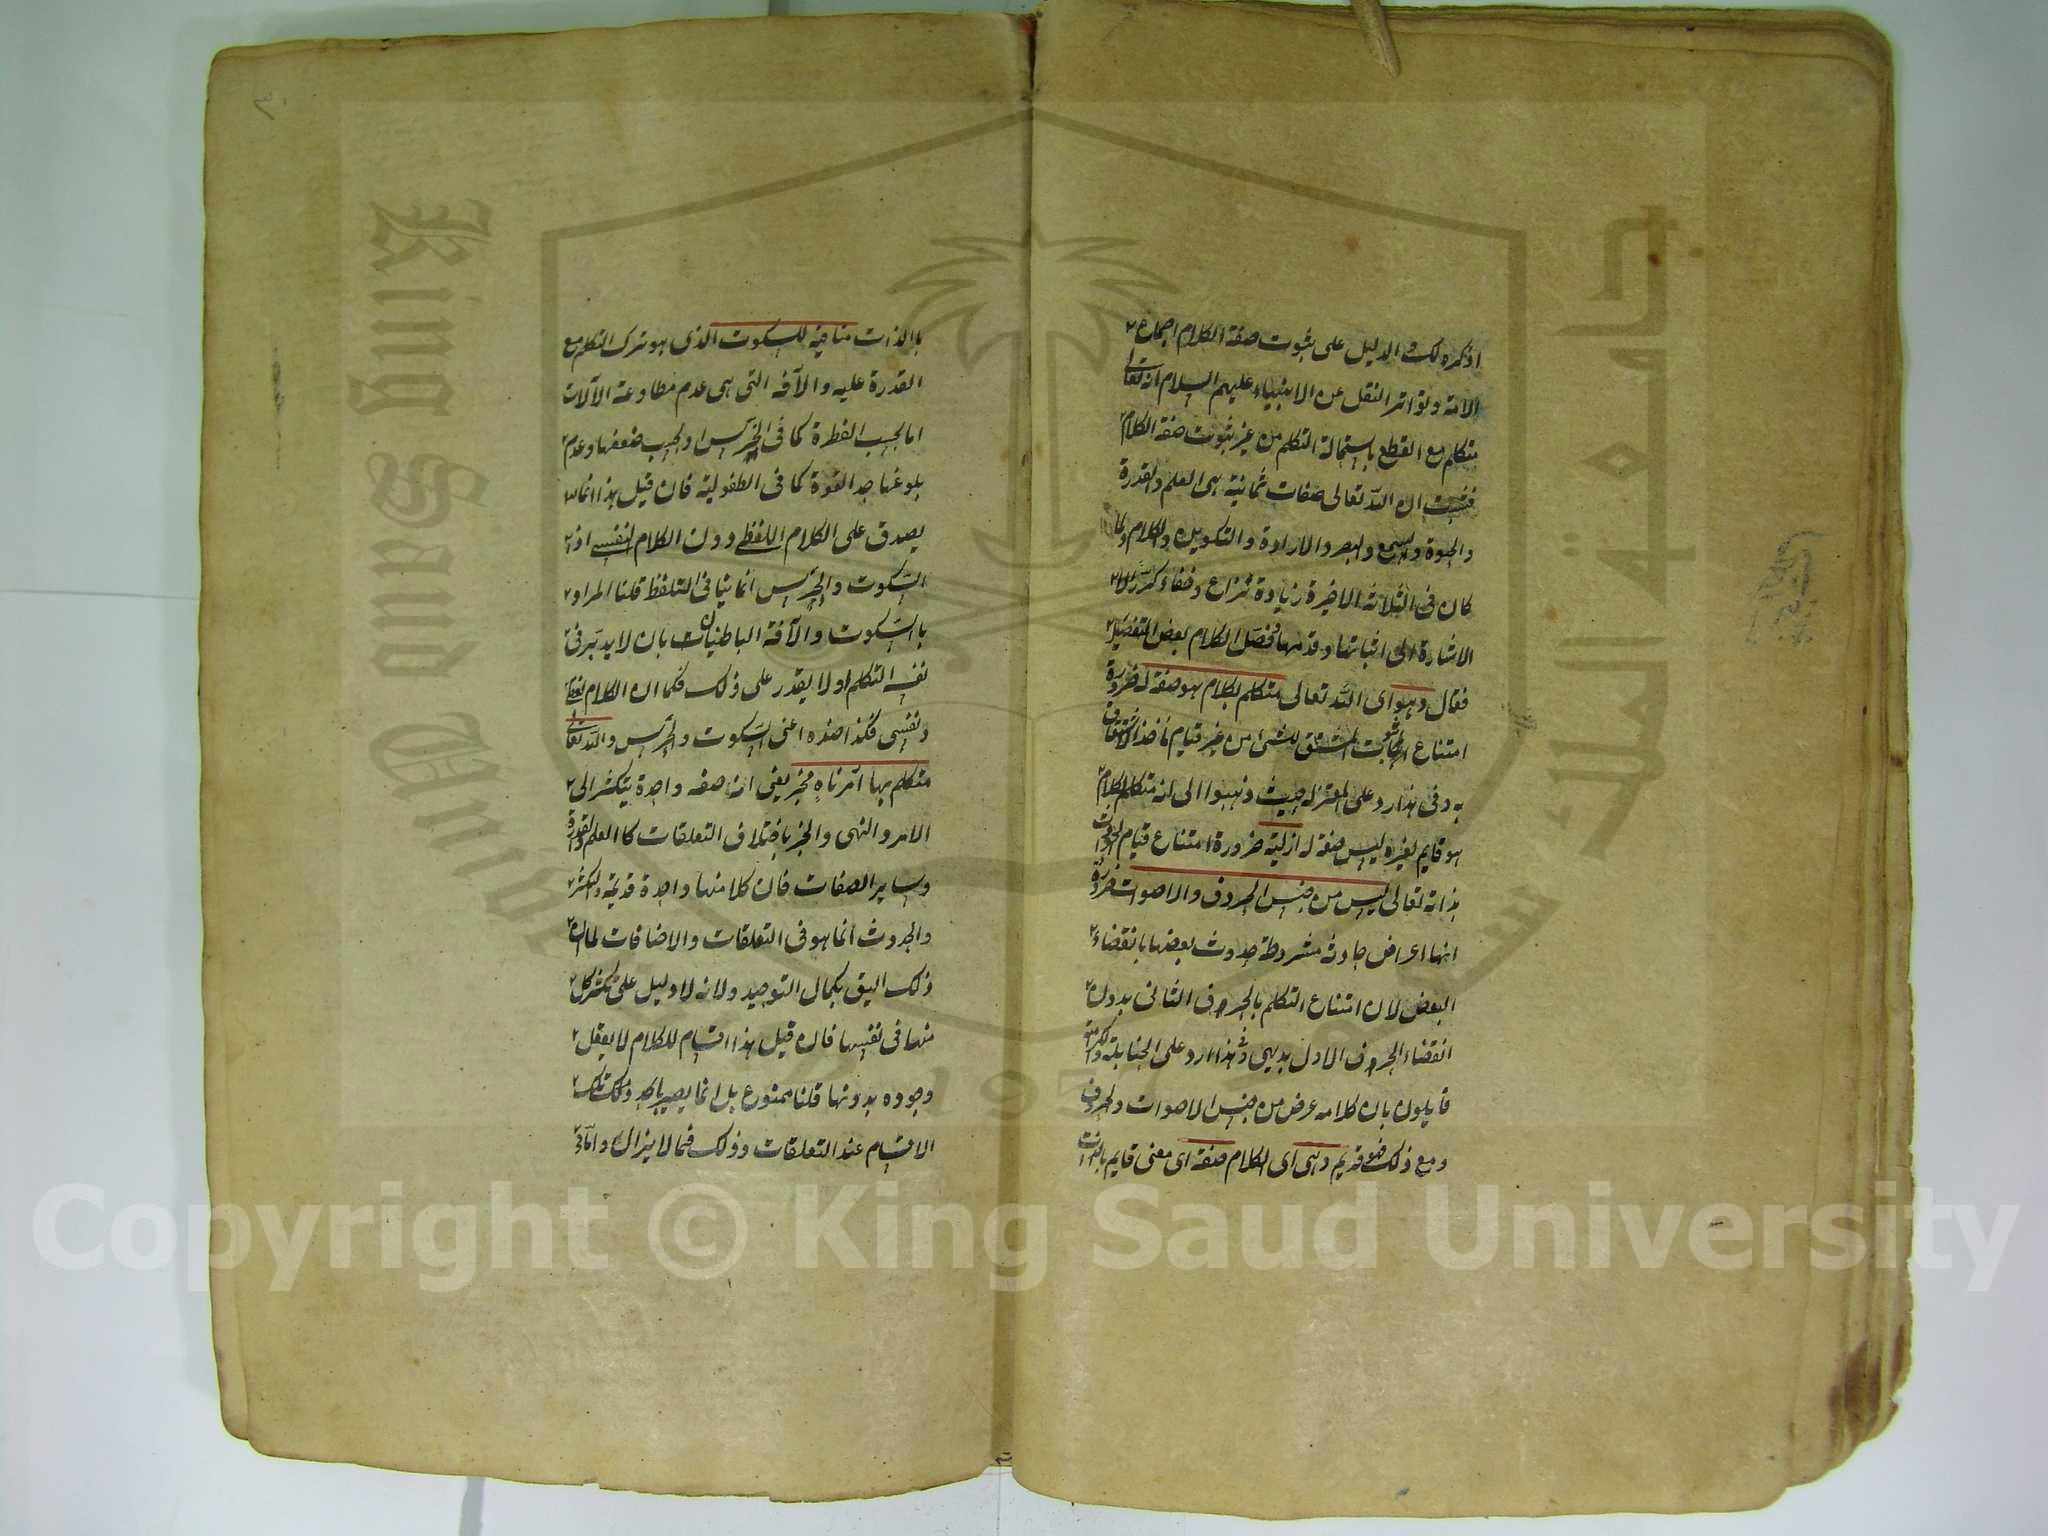 اذكره لك والدليل على ثبوت صفة الكلام اجماع
الامة وتواتر النقل عن الانبياء عليهم السلام انه تعالى
متكلم مع القطع باستحالة التكلم من غير ثبوت صفة الكلام
فثبت ان الله تعالى صفات ثمانية هى العلم والقدرة
والحيوة والسمع والبصر والارادة والتكوين والكلام ولما
كان فى الثلاثة الاخيرة زيادة نزاع وخفاء كرر
الاشارة الى اثباتها وقدمها وفصل الكلام بعض التفصيل
فقال وهو اى الله تعالى متكلم بكلام هو صفة له ضرورة
امتناع اثبات المشتق للشئ من غير قيام ماخذ الاشتقاق
به وفى هذا رد على المعتزلة حيث ذهبوا الى انه متكلم بكلام
هو قايم بغيره ليس صفة له ازلية ضرورة امتناع قيام الحوادث
بذاته تعالى ليس من جنس الحروف والاصوات ضرورة
انها اعراض حادثة مشروطة حدوث بعضها بانقضاء
البعض لان امتناع التكلم بالحروف الثانى بدون
انقضاء الحروف الاول بديهى وفى هذا رد على الحنابلة والكرامية
قايلون بان كلامه عرض من جنس الاصوات والحروف
ومع ذلك فهو قديم وهى اى الكلام صفة اى معنى قايم بالذات
بالذات منافية للسكوت الذى هو ترك التكلم مع
القدرة عليه والآفة التى هى عدم مطاوعة الآلات
اما بحسب الفطرة كما فى الخرس او بحسب ضعفها وعدم
بلوغها حد القوة كما فى الطفولية فان قيل هذا انما
يصدق على الكلام اللفظى دون الكلام النفسى اذ
السكوت والخرس انما ينافى التلفظ قلنا المراد
بالسكوت والآفة الباطنيان بان لا يدبر فى
نفسه التكلم او لا يقدر على ذلك فكما ان الكلام لفظى
ونفسى فكذا ضده اعنى السكوت والخرس والله تعالى
متكلم بها آمر ناه مخبر يعنى انه صفة واحدة يتكثر الى
الامر والنهى والخبر باختلاف التعلقات كالعلم والقدرة
وساير الصفات فان كلا منها واحدة قديمة والتكثر
والحدوث انما هو فى التعلقات والاضافات لما ان
ذلك اليق بكمال التوحيد ولانه لا دليل على تكثر كل
منها فى نفسها فان قيل هذا اقسام للكلام لا يعقل
وجوده بدونها قلنا ممنوع بل انما يصير احد تلك
الاقسام عند التعلقات وذلك فيما لا يزال واما فى
Copyright © King Saud University